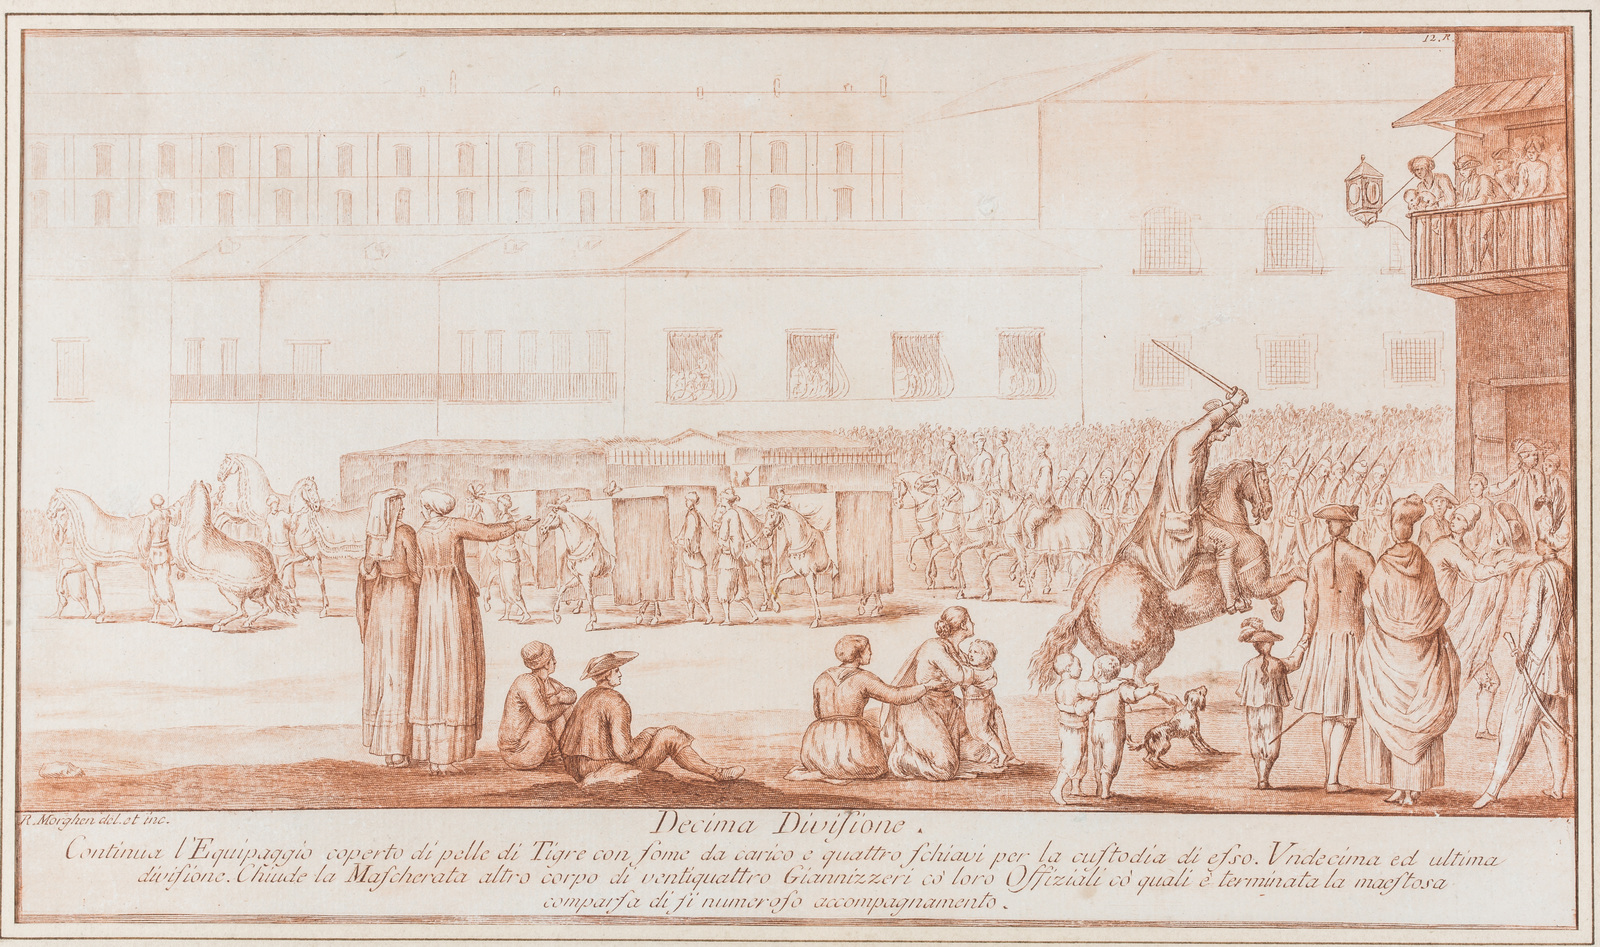 12. R.
R. Morghen del. et inc.
Decima Diviſione.
Continua l'Equipaggio coperto di pelle di Tigre con ſome da carico e quattro ſchiavi per la cuſtodia di eſso. Vndecima ed ultima
diviſione. Chiude la Maſcherata altro corpo di ventiquattro Giannizzeri cò loro Offiziali cò quali è terminata la maeſtosa
comparſa di ſi numeroſo accompagnamento.